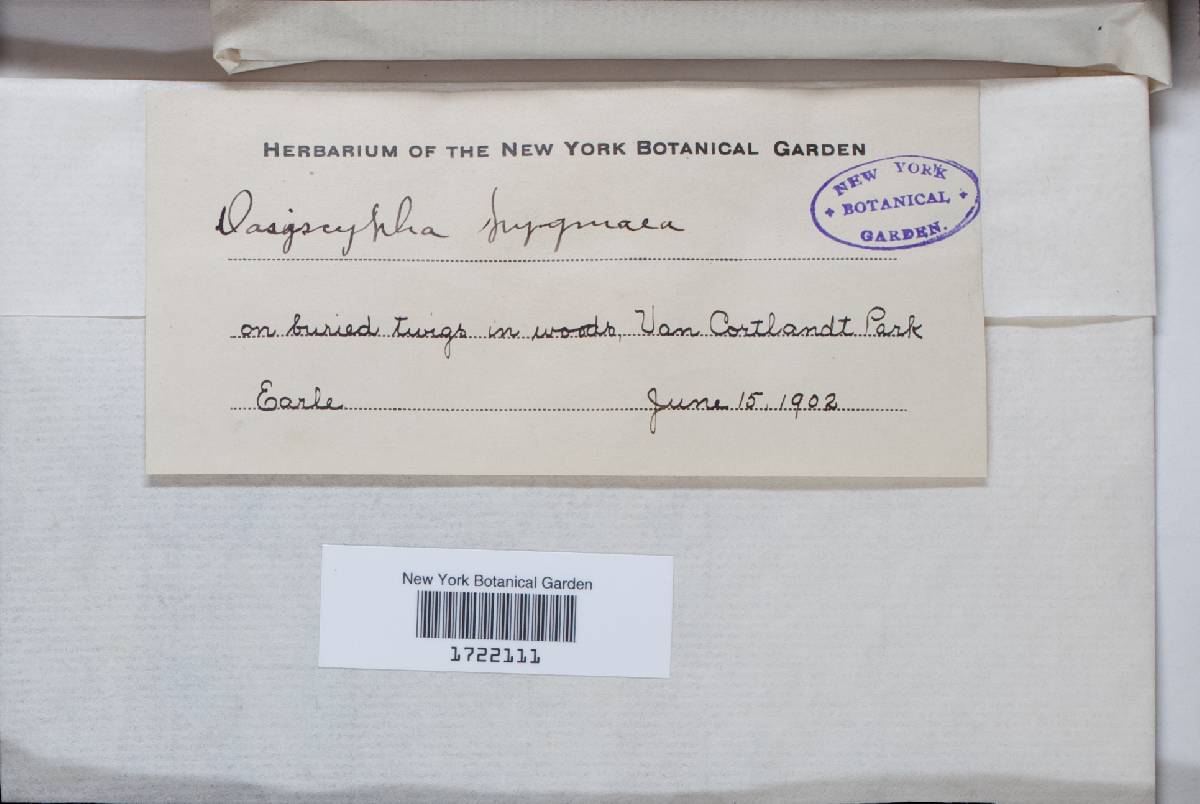 HERBARIUM OF THE NEW YORK BOTANICAL GARDEN
NEW YORK
BOTANICAL
GARDEN.
Dasyscypha pygmaea
on buried twigs in woods, Van Cortlandt Park
Earle June 15, 1902
New York Botanical Garden
1722111